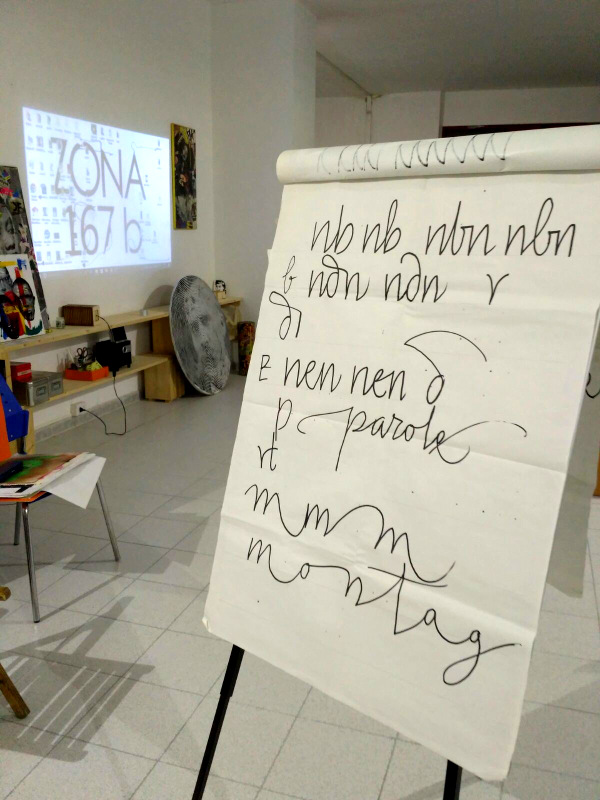 ZONA
167 b
nb nb nbn nbn
b nðn nðn r
ð1
E nen nen
p parole
rt
m m m
montag